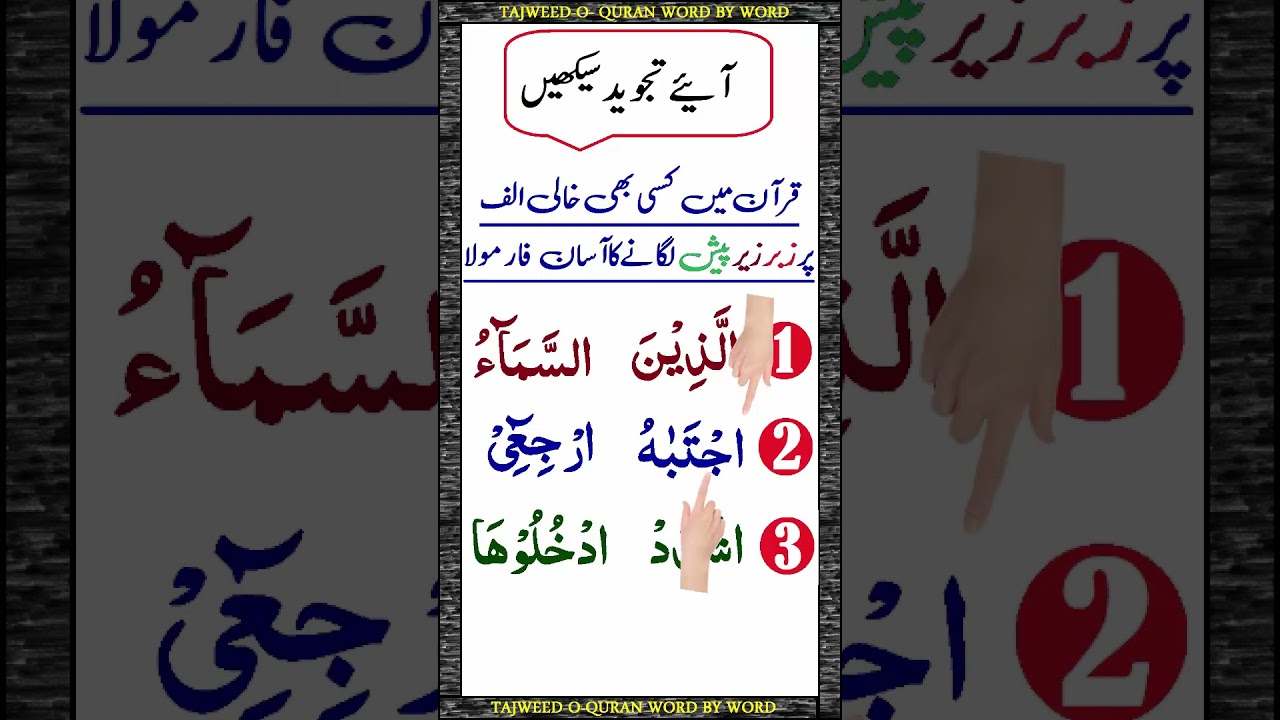 TAJWEED-O- QURAN WORD BY WORD
آیئے تجوید سیکھیں
قرآن میں کسی بھی خالی الف
پر زبر زیر پیش لگانے کا آسان فارمولا
1 الَّذِيْنَ السَّمَآءُ
2 اجْتَبٰىهُ ارْجِعِيْٓ
3 ادْخُلُوْهَا
TAJWEED-O-QURAN WORD BY WORD